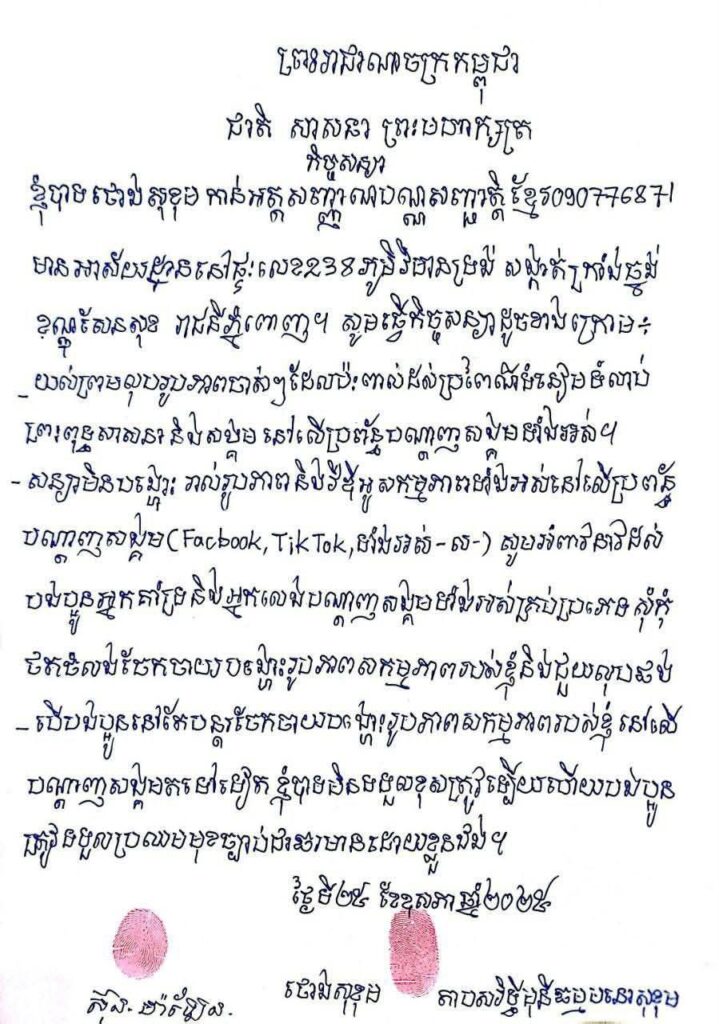 ព្រះរាជាណាចក្រកម្ពុជា
ជាតិ សាសនា ព្រះមហាក្សត្រ
កិច្ចសន្យា
ខ្ញុំបាទ ថោង សុខុម កាន់អត្តសញ្ញាណបណ្ណសញ្ជាតិខ្មែរ 090776871
មានអាស័យដ្ឋាននៅផ្ទះលេខ238 ភូមិវិមានម្រង់ សង្កាត់ក្រាំងធ្នង់
ខណ្ឌសែនសុខ រាជធានីភ្នំពេញ។ សូមធ្វើកិច្ចសន្យាដូចខាងក្រោម៖
- យល់ព្រមលុបរូបភាពចាស់ៗដែលប៉ះពាល់ដល់ប្រពៃណីទំនៀមទំលាប់
ព្រះពុទ្ធសាសនា និងសង្គម នៅលើប្រព័ន្ធបណ្តាញសង្គមទាំងអស់។
- សន្យាមិនបង្ហោះ រាល់រូបភាពនិងវីឌីអូសកម្មភាពទាំងអស់នៅលើប្រពន្ធ័
បណ្តាញសង្គម(Facbook,TikTok,ទាំងអស់-ល-) សូមអំពាវនាវដល់
បងប្អូនអ្នកគាំទ្រនិងអ្នកលេងបណ្តាញសង្គមទាំងអស់គ្រប់ប្រភេទ សុំកុំ
ថតចំលងចែកចាយបង្ហោះរូបភាពសកម្មភាពរបស់ខ្ញុំនិងជួយលុបផង
- បើបងប្អូននៅតែបន្តចែកចាយបង្ហោះរូបភាពសកម្មភាពរបស់ខ្ញុំ នៅលើ
បណ្តាញសង្គមតទៅទៀត ខ្ញុំបាទមិនទទួលខុសត្រូវឡើយហើយបងប្អូន
ត្រូវទទួលប្រឈមមុខច្បាប់ជាធរមានដោយខ្លួនឯង។
ថ្ងៃទី២៥ ខែឧសភា ឆ្នាំ២០២៥
ថោង សុខុម
តាបសវិទ្ធីមុនីធម្មមនោសុខុម